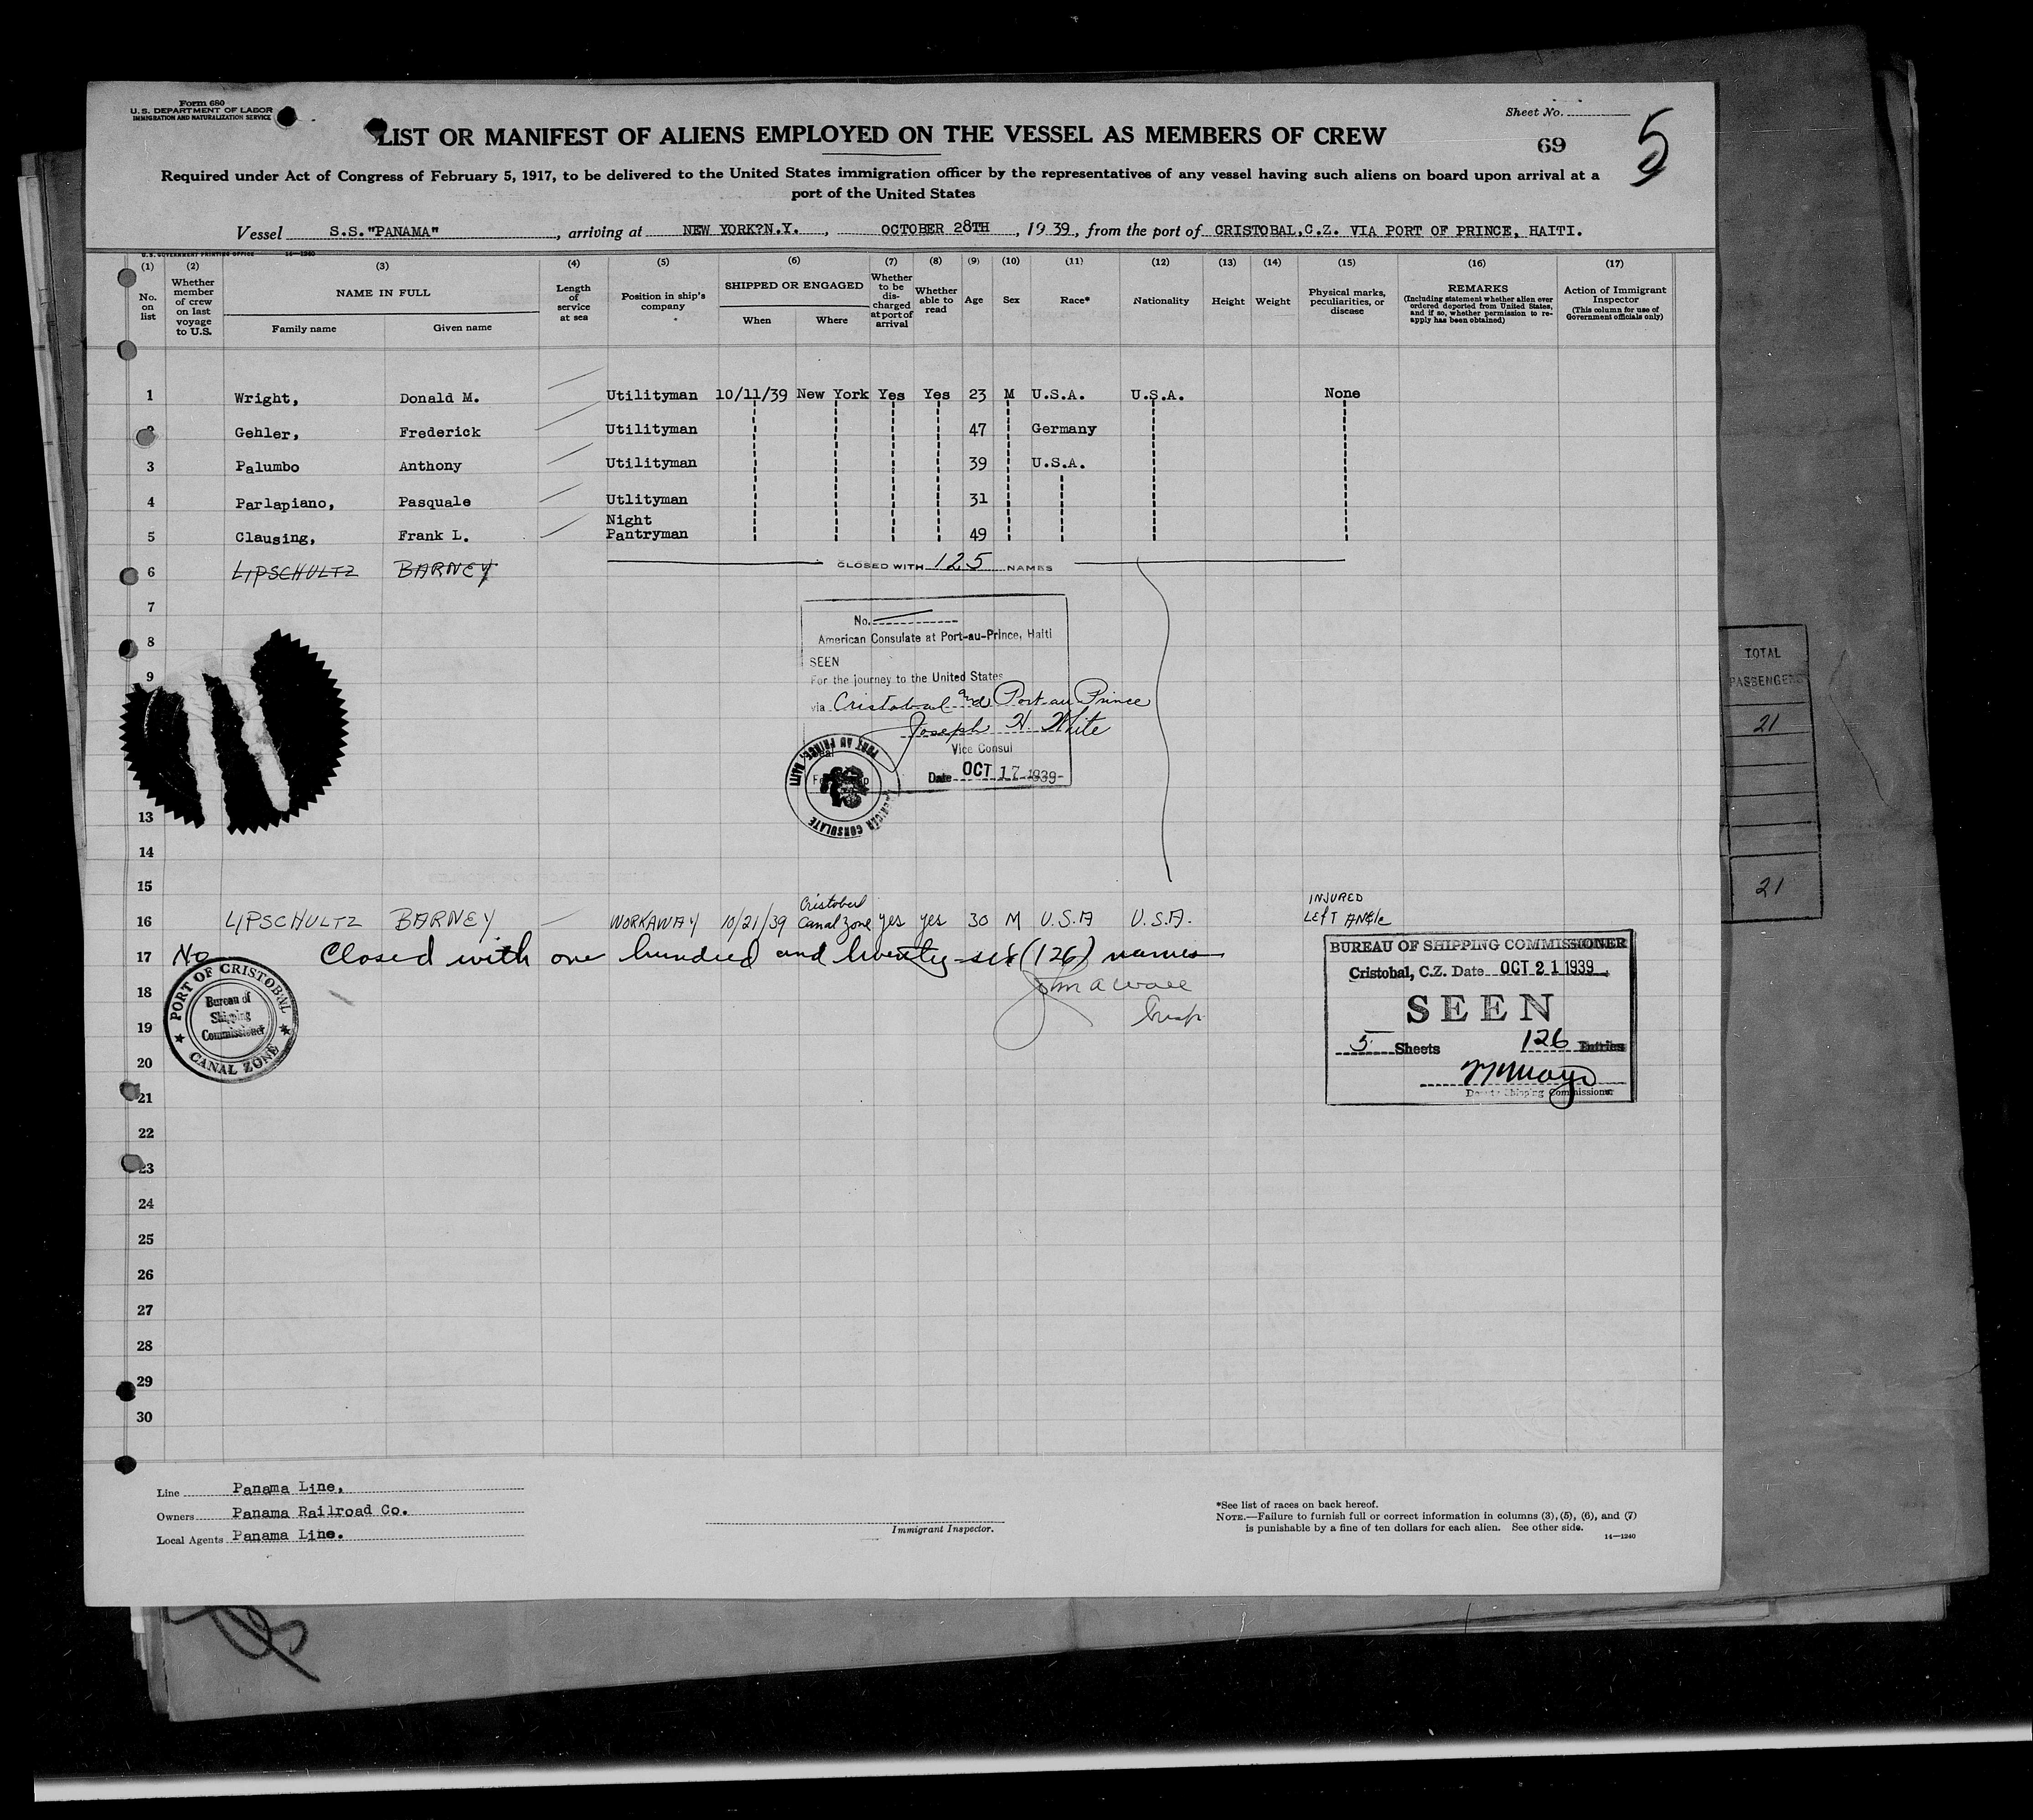 Form 680
U. S. DEPARTMENT OF LABOR
IMMIGRATION AND NATURALIZATION SERVICE
Sheet No.
LIST OR MANIFEST OF ALIENS EMPLOYED ON THE VESSEL AS MEMBERS OF CREW
69
5
Required under Act of Congress of February 5, 1917, to be delivered to the United States immigration officer by the representatives of any vessel having such aliens on board upon arrival at a
port of the United States
Vessel S.S."PANAMA", arriving at NEW YORK?N.Y., OCTOBER 28TH, 1939, from the port of CRISTOBAL,C.Z. VIA PORT OF PRINCE, HAITI.
U.S. GOVERNMENT PRINTING OFFICE 14—1240
(1) (2) (3) (4) (5) (6) (7) (8) (9) (10) (11) (12) (13) (14) (15) (16) (17)
No. on list
Whether member of crew on last voyage to U.S.
NAME IN FULL
Family name
Given name
Length of service at sea
Position in ship's company
SHIPPED OR ENGAGED
When
Where
Whether to be dis-charged at port of arrival
Whether able to read
Age
Sex
Race*
Nationality
Height
Weight
Physical marks, peculiarities, or disease
REMARKS
(Including statement whether alien ever ordered deported from United States, and if so, whether permission to re-apply has been obtained)
Action of Immigrant Inspector
(This column for use of Government officials only)
1 Wright, Donald M. Utilityman 10/11/39 New York Yes Yes 23 M U.S.A. U.S.A. None
2 Gehler, Frederick Utilityman 47 Germany
3 Palumbo Anthony Utilityman 39 U.S.A.
4 Parlapiano, Pasquale Utlityman 31
5 Clausing, Frank L. Night Pantryman 49
6 LIPSCHULTZ BARNEY CLOSED WITH 125 NAMES
7
No.
American Consulate at Port-au-Prince, Haiti
8
SEEN
9
For the journey to the United States
via Cristobal and Port au Prince
Joseph H White
Vice Consul
Date OCT 17 1939
PORT AU PRINCE, HAITI
CONSULATE
13
14
15
16 LIPSCHULTZ BARNEY WORKAWAY 10/21/39 Cristobal Canal Zone yes yes 30 M U.S.A U.S.A. INJURED LEFT ANKle
17 No Closed with one hundred and twenty-six (126) names
John a Wall
Insp
PORT OF CRISTOBAL
Bureau of
Shipping
Commissioner
CANAL ZONE
BUREAU OF SHIPPING COMMISSIONER
Cristobal, C.Z. Date OCT 21 1939
SEEN
5 Sheets 126 Entries
Deputy Shipping Commissioner
18
19
20
21
22
23
24
25
26
27
28
29
30
TOTAL
PASSENGERS
21
21
Line Panama Line,
Owners Panama Railroad Co.
Local Agents Panama Line.
Immigrant Inspector.
*See list of races on back hereof.
NOTE.—Failure to furnish full or correct information in columns (3), (5), (6), and (7)
is punishable by a fine of ten dollars for each alien. See other side.
14—1240